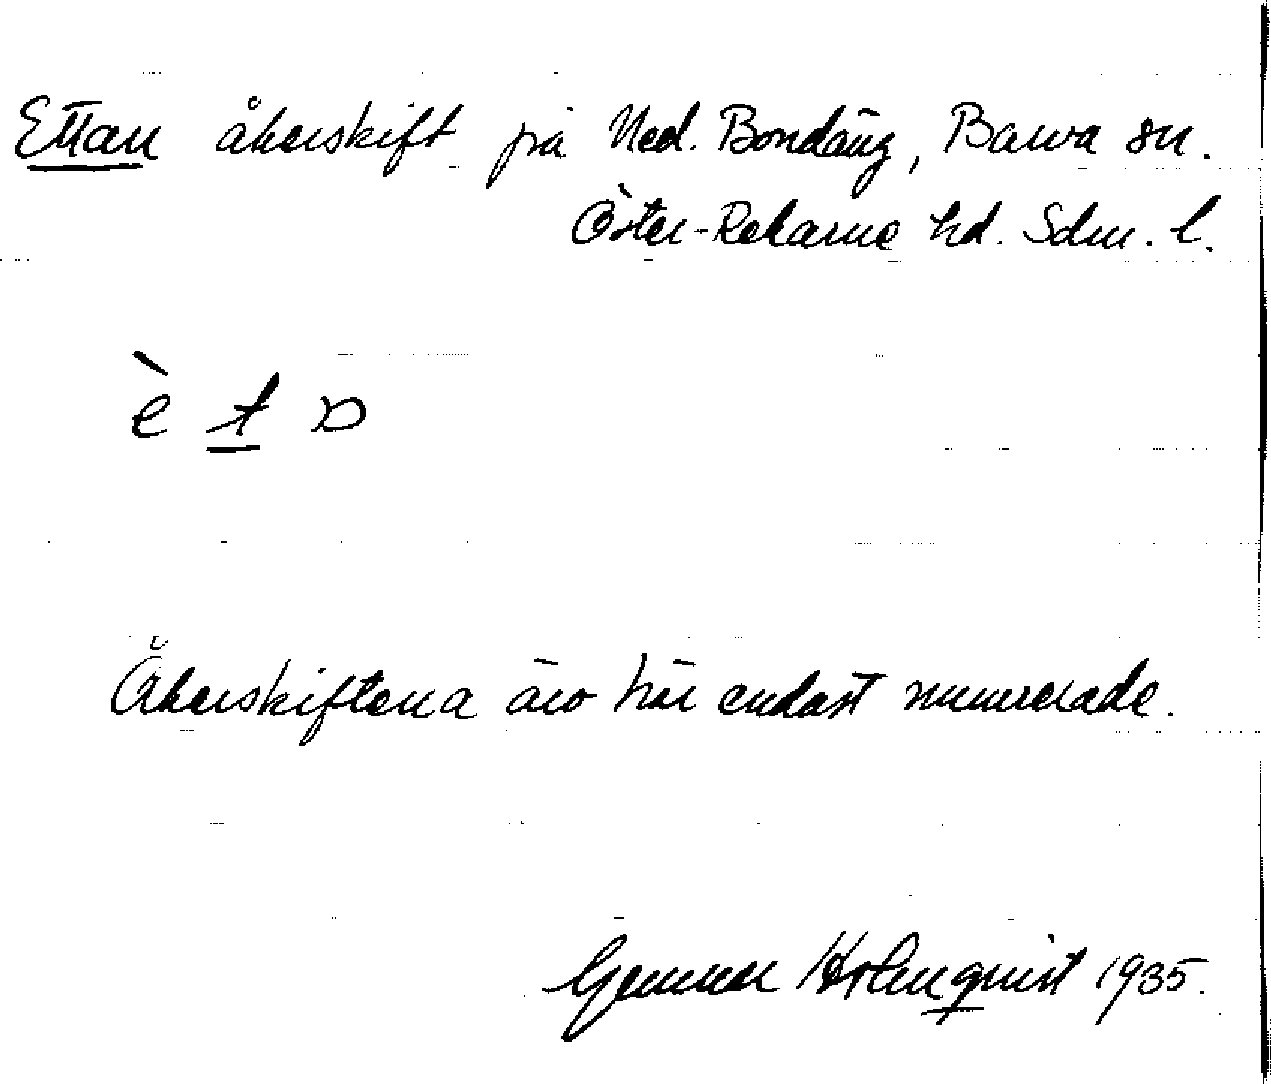 Ettan åkerskift på Ned. Bondäng, Barva sn.
Öster-Rekarne hd. Sdm. l.
è t
Åkerskiftena äro här endast numrerade.
Gunnar Holmquist 1935.